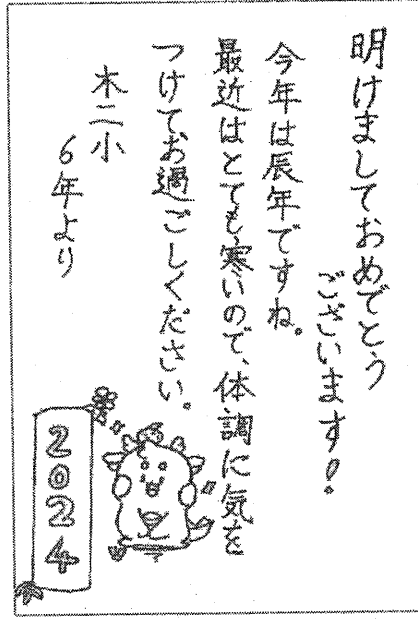 明けましておめでとう
ございます！
今年は辰年ですね。
最近はとても寒いので、体調に気を
つけてお過ごしください。
木二小
6年より
2024